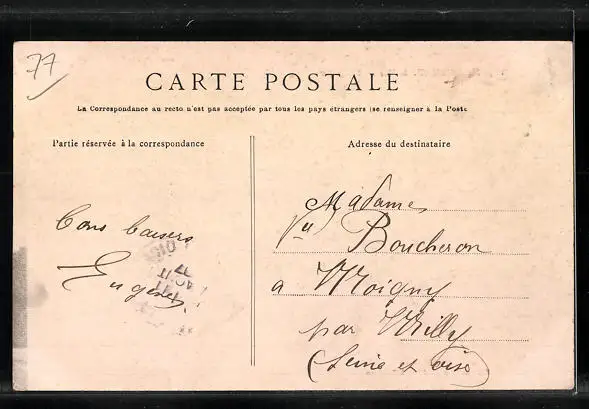 77
CARTE POSTALE
La Correspondance au recto n'est pas acceptée par tous les pays étrangers (se renseigner à la Poste
Partie réservée à la correspondance
Adresse du destinataire
Bons baisers
Eugénie
Madame
Vve Boucheron
a Moigny
par Milly
(Seine et oise)